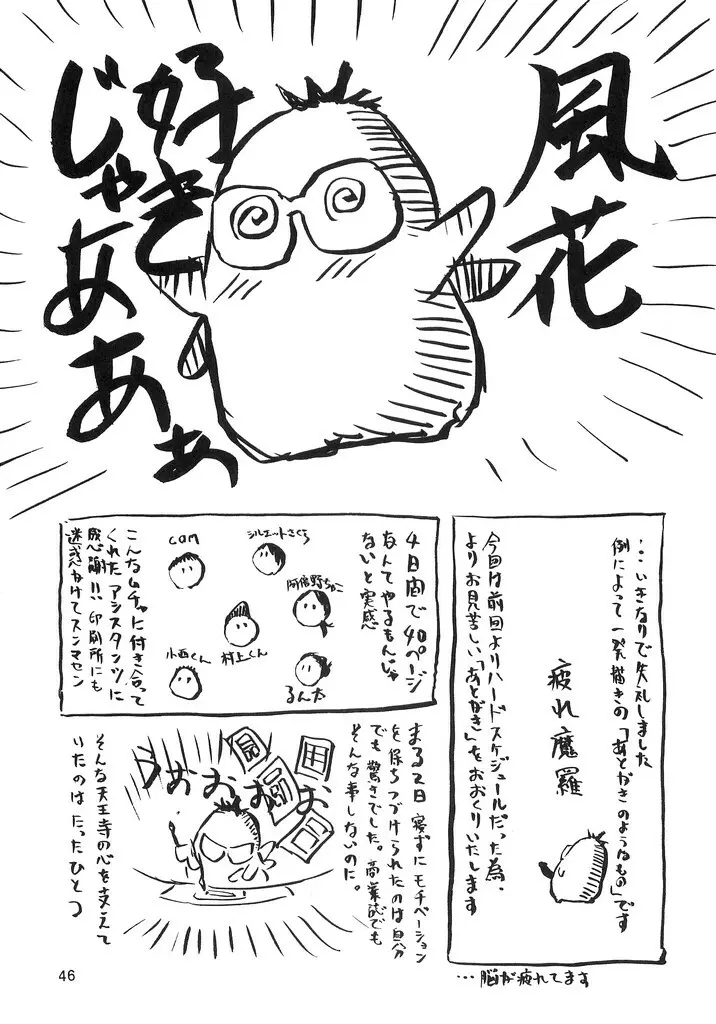 風花
好き
じゃ
あああぁ
・・いきなりで失礼しました
例によって一発描きの「あとがきのようなもの」です
疲れ魔羅
今回は前回よりハードスケジュールだった為、
よりお見苦しい「あとがき」をおおくりいたします
…脳が疲れてます
4日間で40ページ
なんてやるもんじゃ
ないと実感
シルエットさくら
cam
阿倍野ちゃこ
村上くん
小西くん
るん太
こんなムチャに付き合って
くれたアシスタンツに
感謝!!印刷所にも
迷惑かけてスンマセン
まる2日寝ずにモチベーション
を保ちつづけられたのは自分
でも驚きでした。商業誌でも
そんな事しないのに。
うおおおお
そんな天王寺の心を支えて
いたのはたったひとつ
46